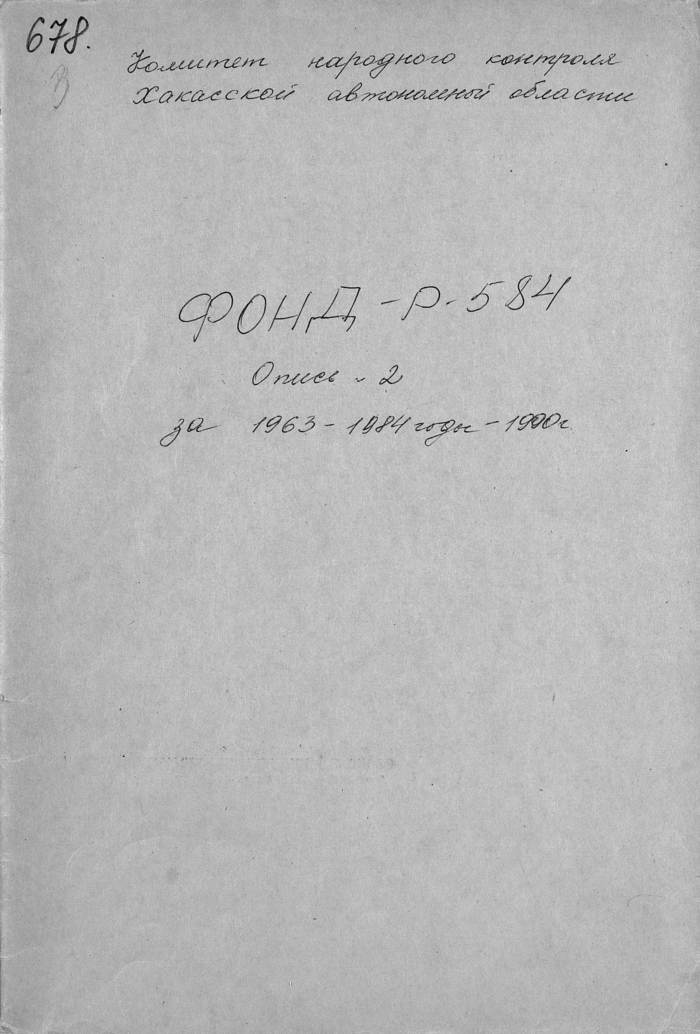 678.
Комитет народного контроля
Хакасской автономный области
ФОНД - Р - 584
Опись № 2
за 1963 - 1984 годы - 1990 г.